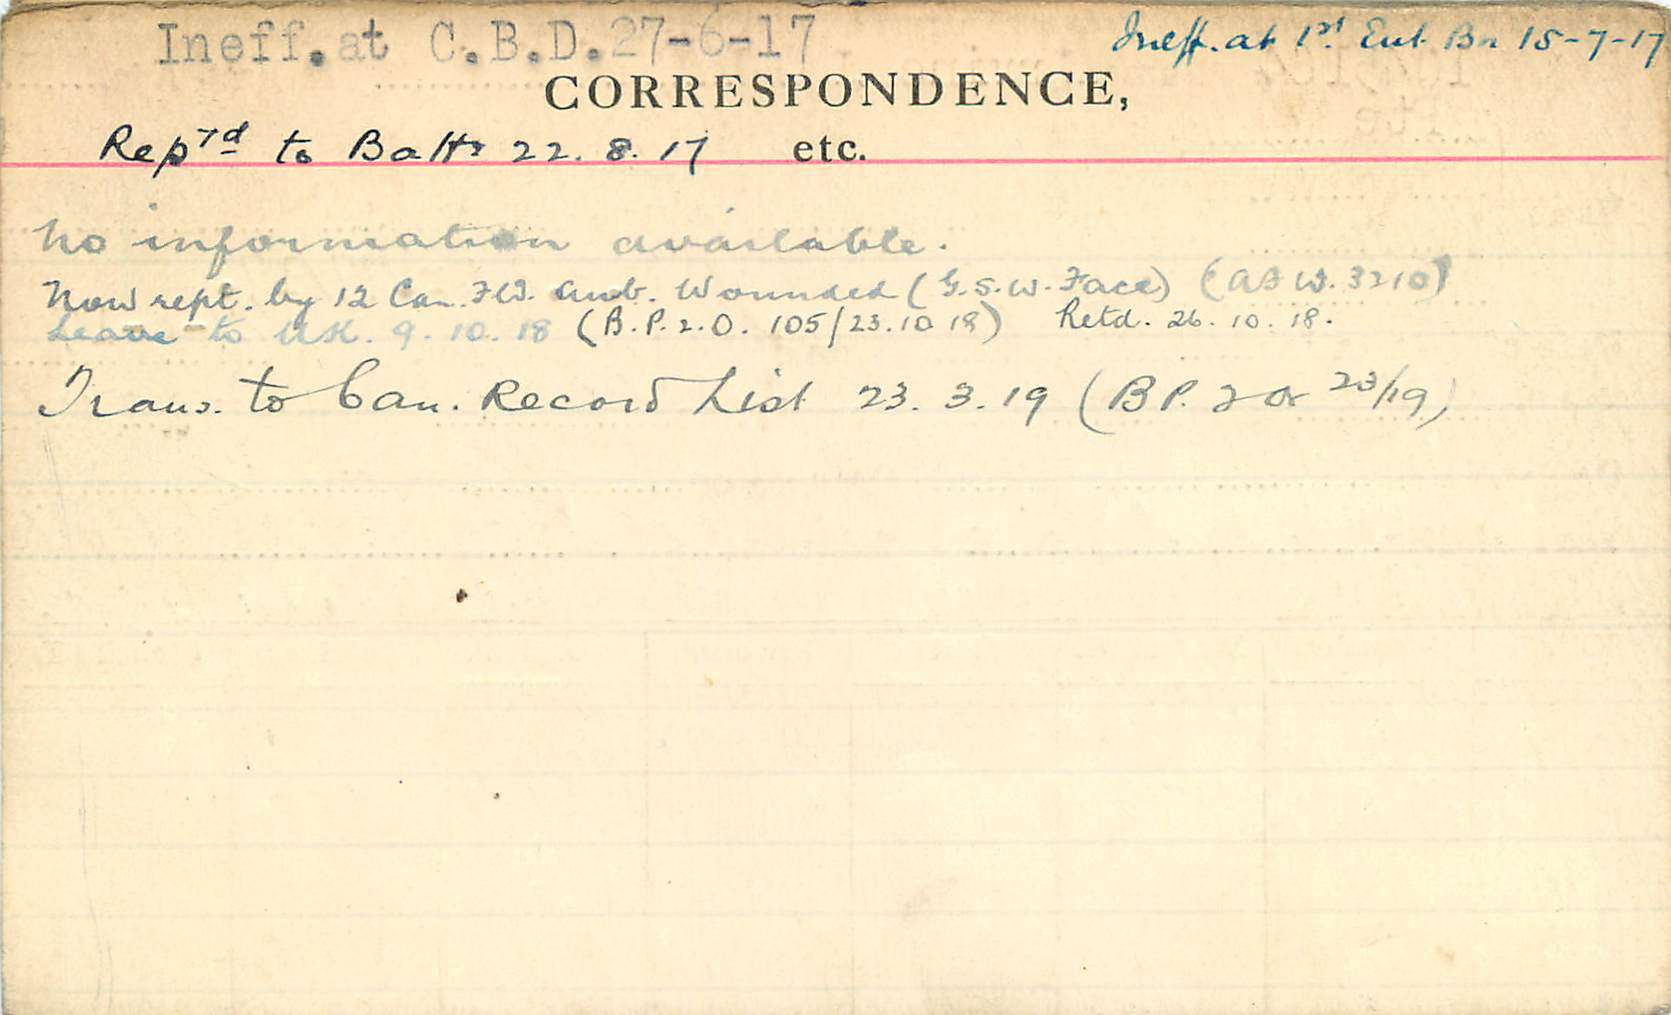 Ineff. at C.B.D. 27-6-17
Ineff. at 1st Ent. Bn 15-7-17
CORRESPONDENCE,
Rep'd to Battn 22. 8. 17 etc.
No information available.
Now rept. by 12 Can. Fld. Amb. Wounded (G.S.W. Face) (AF W. 3210)
Leave to UK. 9. 10. 18 (B.P.2.O. 105/23.10 18) Retd. 26. 10. 18.
Trans. to Can. Record List 23. 3. 19 (B P. 2 Or 23/19)